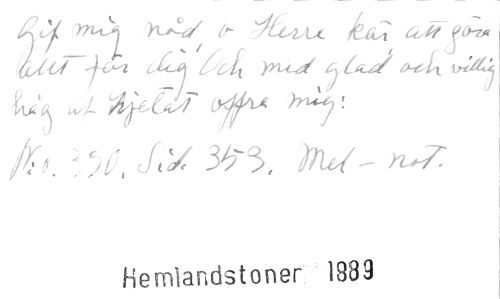 Gif mig nåd, o Herre kär, att göra
allt för dig, Och med glad och villig
håg at hjelat offra mig:
No. 390. Sid. 353. Mel-not.
Hemlandstoner 1889